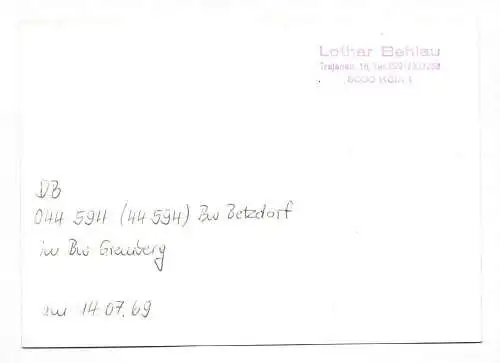 Lothar Behlau
Trajanstr. 16,
5000 Köln 1
DB
044 594 (44 594) Bw Betzdorf
im Bw Gremberg
am 14.07.69